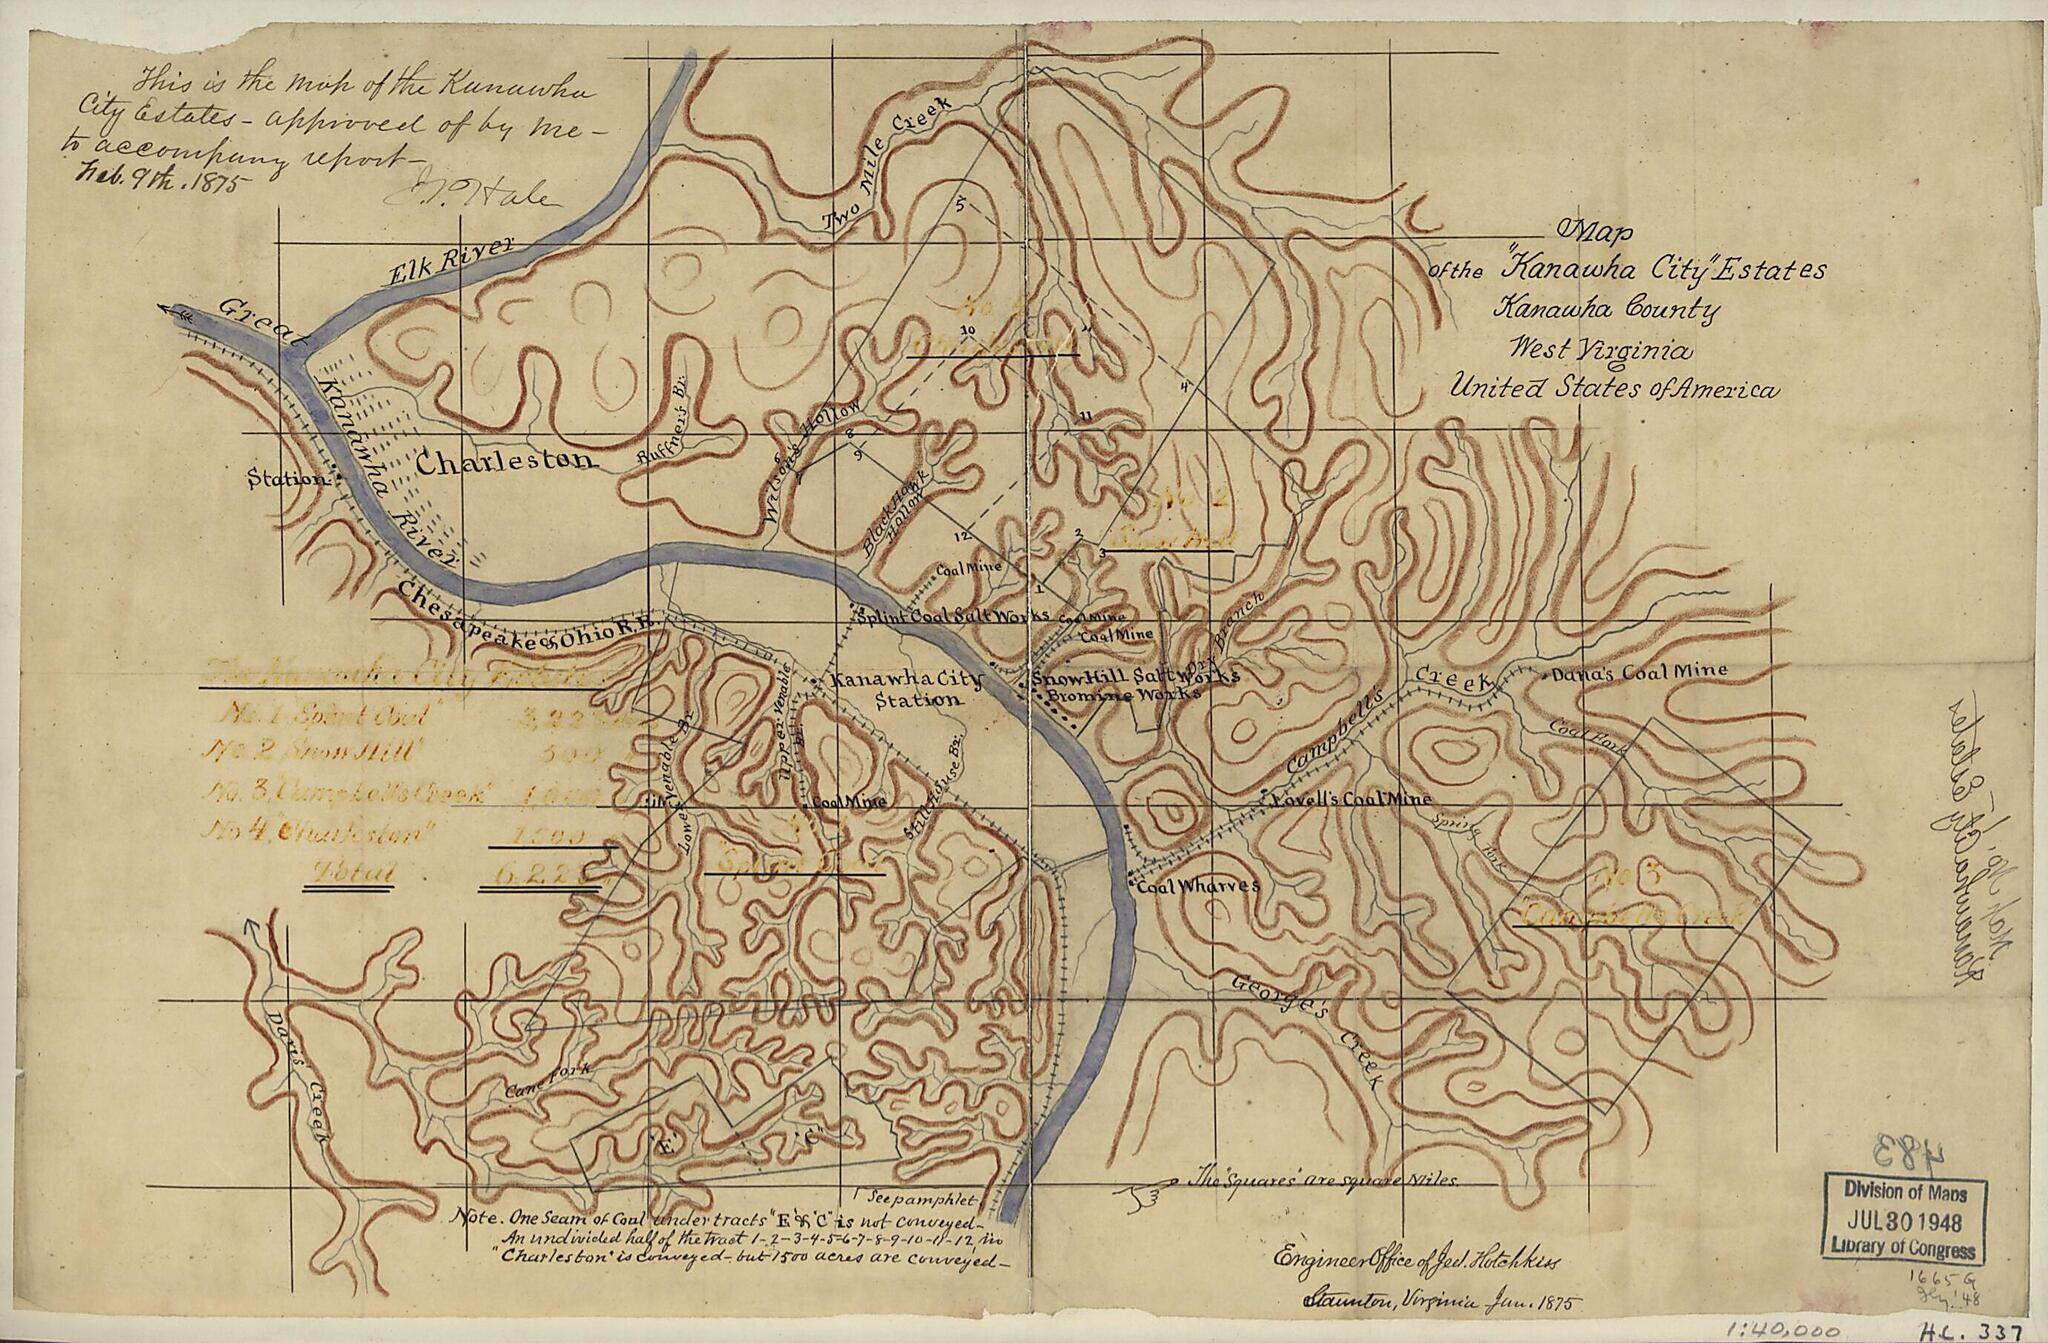 This is the map of the Kanawha
City Estates - approved of by me -
to accompany report -
Feb. 9th. 1875
J.P. Hale
Map
of the "Kanawha City" Estates
Kanawha County
West Virginia
United States of America
Elk River
Great
Kanawha
River
Two Mile Creek
Charleston
Station
Ruffner's Br.
Wilson's Hollow
Black Hawk
Hollow
5
10
4
11
8
9
12
2
3
1
No. 2
Snow Hill
Coal Mine
Splint Coal Salt Works
Coal Mine
Coal Mine
Dry Branch
Chesapeake & Ohio R.R.
Kanawha City
Station
Snow Hill Salt Works
Bromine Works
Campbell's
Creek
Dana's Coal Mine
Coal Fork
The Kanawha City Estates
No. 1, Splint Coal"
No. 2 Snow Hill"
No. 3, "Campbell's Creek"
No 4, "Charleston"
1500
Total
Lower Venable Br.
Upper Venable
Br.
Coal Mine
Stillhouse Br.
Lovell's Coal Mine
Spring Fork
Splint Coal
Coal Wharves
No 3
"Campbell's Creek"
George's
Creek
Davis
Creek
Cane Fork
"E"
"C"
See pamphlet
Note. One Seam of Coal under tracts "E & "C" is not conveyed -
An undivided half of the tract 1-2-3-4-5-6-7-8-9-10-11-12, in
"Charleston" is conveyed - but 1500 acres are conveyed -
The "Squares" are square Miles.
Engineer Office of Jed. Hotchkiss
Staunton, Virginia Jan. 1875
Map
Kanawha City Estates
483
Division of Maps
JUL 30 1948
Library of Congress
1665 G
'48
1:40,000
H.C. 337